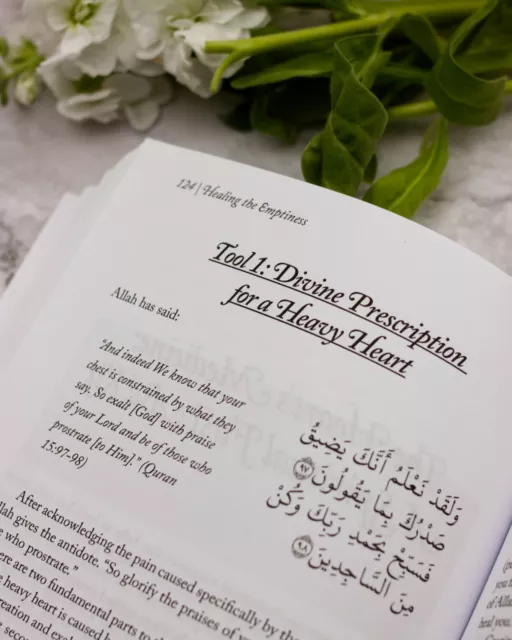 124 | Healing the Emptiness
Tool 1: Divine Prescription
for a Heavy Heart
Allah has said:
"And indeed We know that your
chest is constrained by what they
say. So exalt [God] with praise
of your Lord and be of those who
prostrate [to Him]." (Quran
15:97-98)
وَلَقَدْ نَعْلَمُ أَنَّكَ يَضِيقُ
صَدْرُكَ بِمَا يَقُولُونَ ٩٧
فَسَبِّحْ بِحَمْدِ رَبِّكَ وَكُنْ
مِنَ السَّاجِدِينَ ٩٨
After acknowledging the pain caused specifically by the
gives the antidote. "So glorify the praises of
who prostrate."
are two fundamental parts to
heavy heart is caused